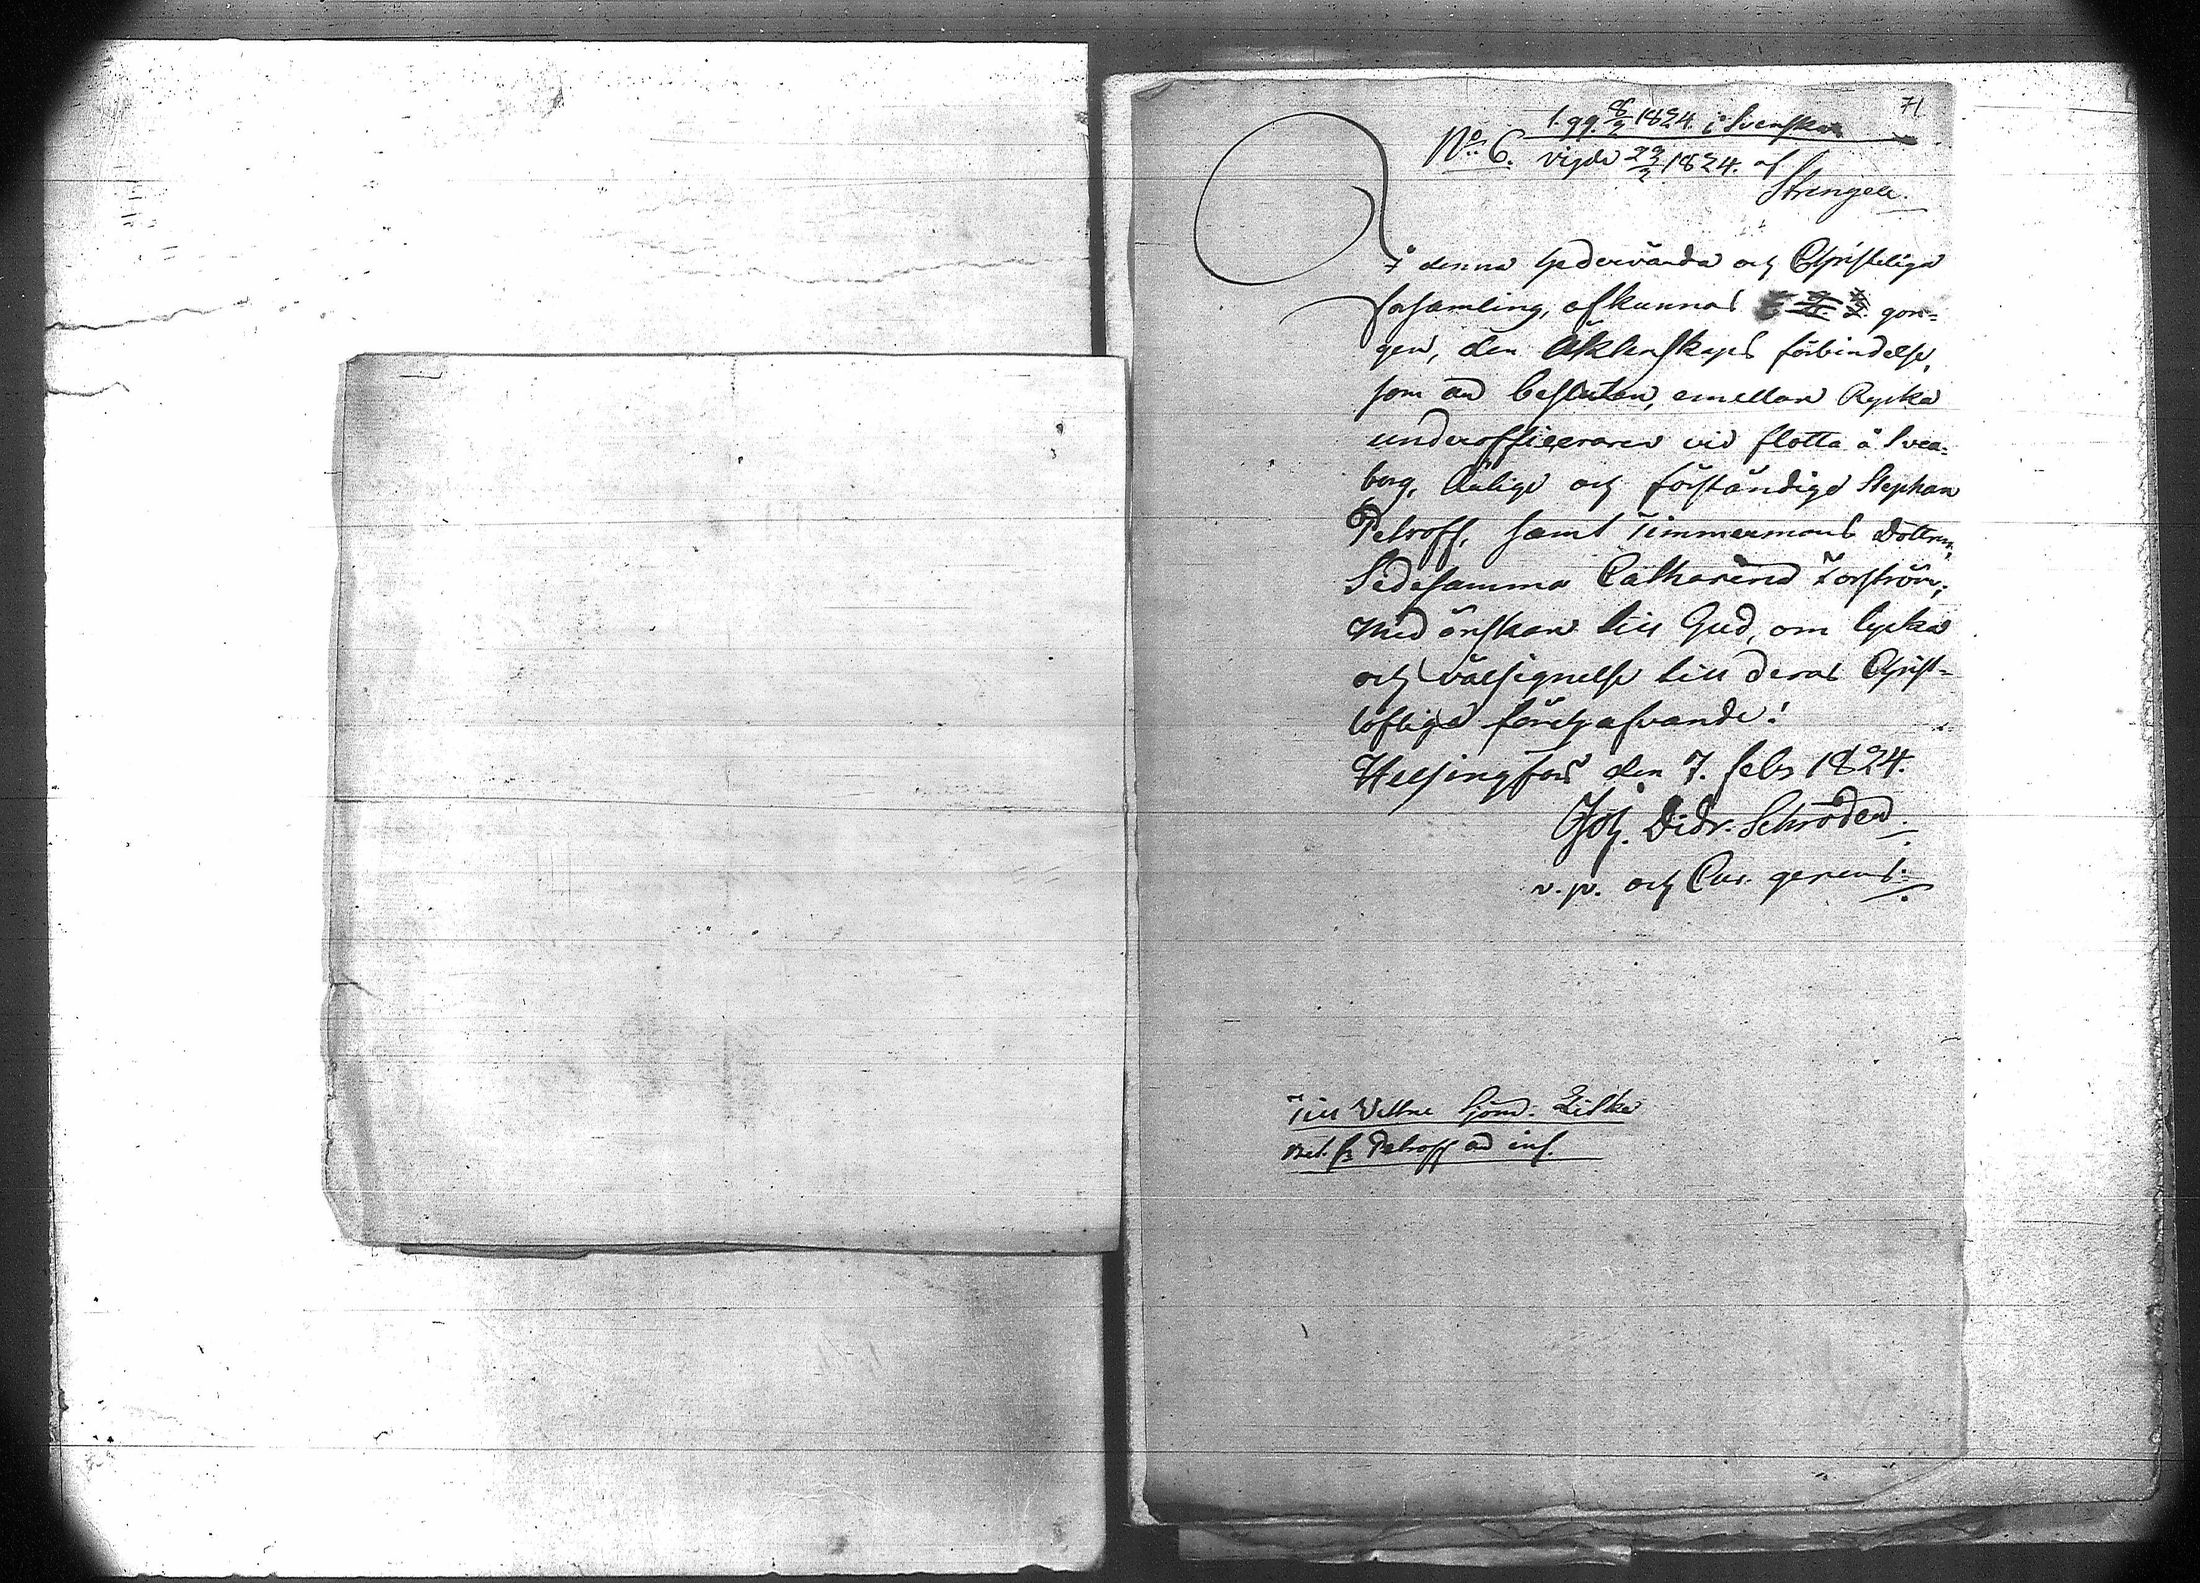 71
1. gg. 8/2 1824. i Svenska
No 6. vigde 22/2 1824. af
Strengell.
I denna hedervärda och Christeliga
församling, afkunnas gån-
gen, den Äktenskaps förbindelse,
som är besluten, emellan Ryska
underofficeraren vid flotta å Svea-
borg, ärlige och förståndige Stephan
Petroff, samt Timmermans Dottren,
Sedesamma Catharina Forström;
med önskan till Gud, om lycka
och välsignelse till deras Christ-
lofliga förehafvande!
Helsingfors den 7. Febr 1824.
Joh. Didr. Schröder.
v. p. och Cur. gerens.
Till Vittne
Petroff ad inf.